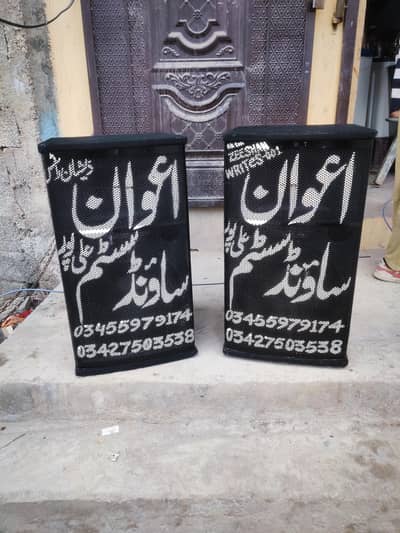 ذیشان رائٹس
اعوان
ساؤنڈ سسٹم علی پور
03455979174
03427503538
ZEESHAN
WRITES-001
اعوان
ساؤنڈ سسٹم علی پور
03455979174
03427503538